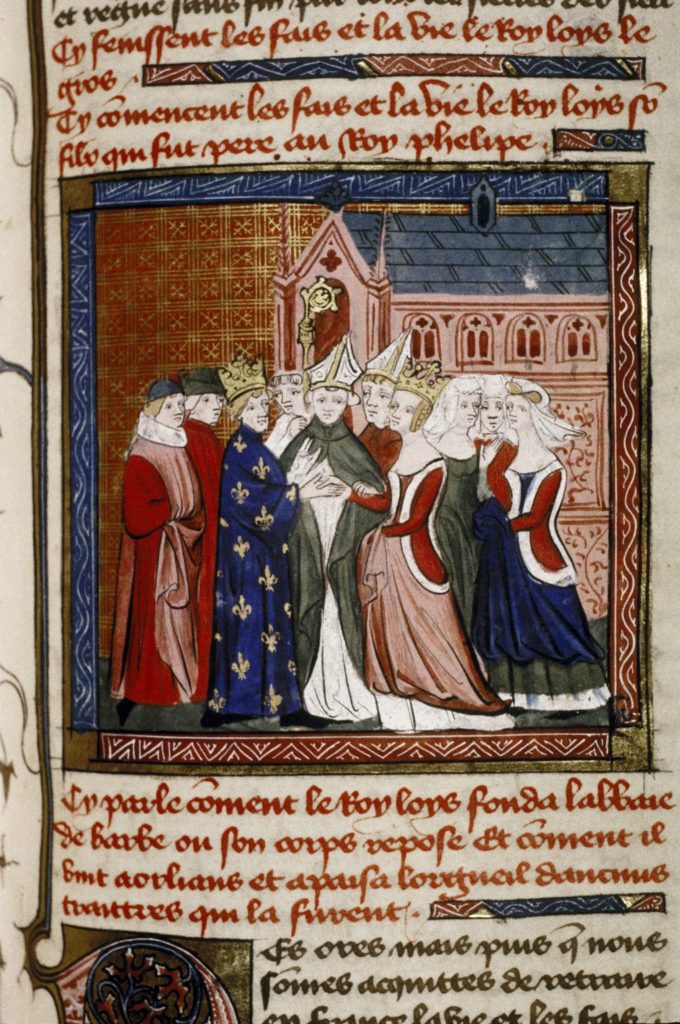 et regne sans fin par tous les siecles des siecl
Cy fenissent les fais et la vie le Roy loys le
gros .
Cy cōmencent les fais et la vie le Roy loys sō
filz qui fut pere au Roy phelipe .
Cy parle cōment le Roy loys fonda labbaie
de barbe ou son corps repose Et cōment il
vint a orlians et apaisa lorgueil daucuns
traittres qui la furent .
Es ores mais puis q̄ nous
sōmes acquittes de retraire
en france la vie et les fais